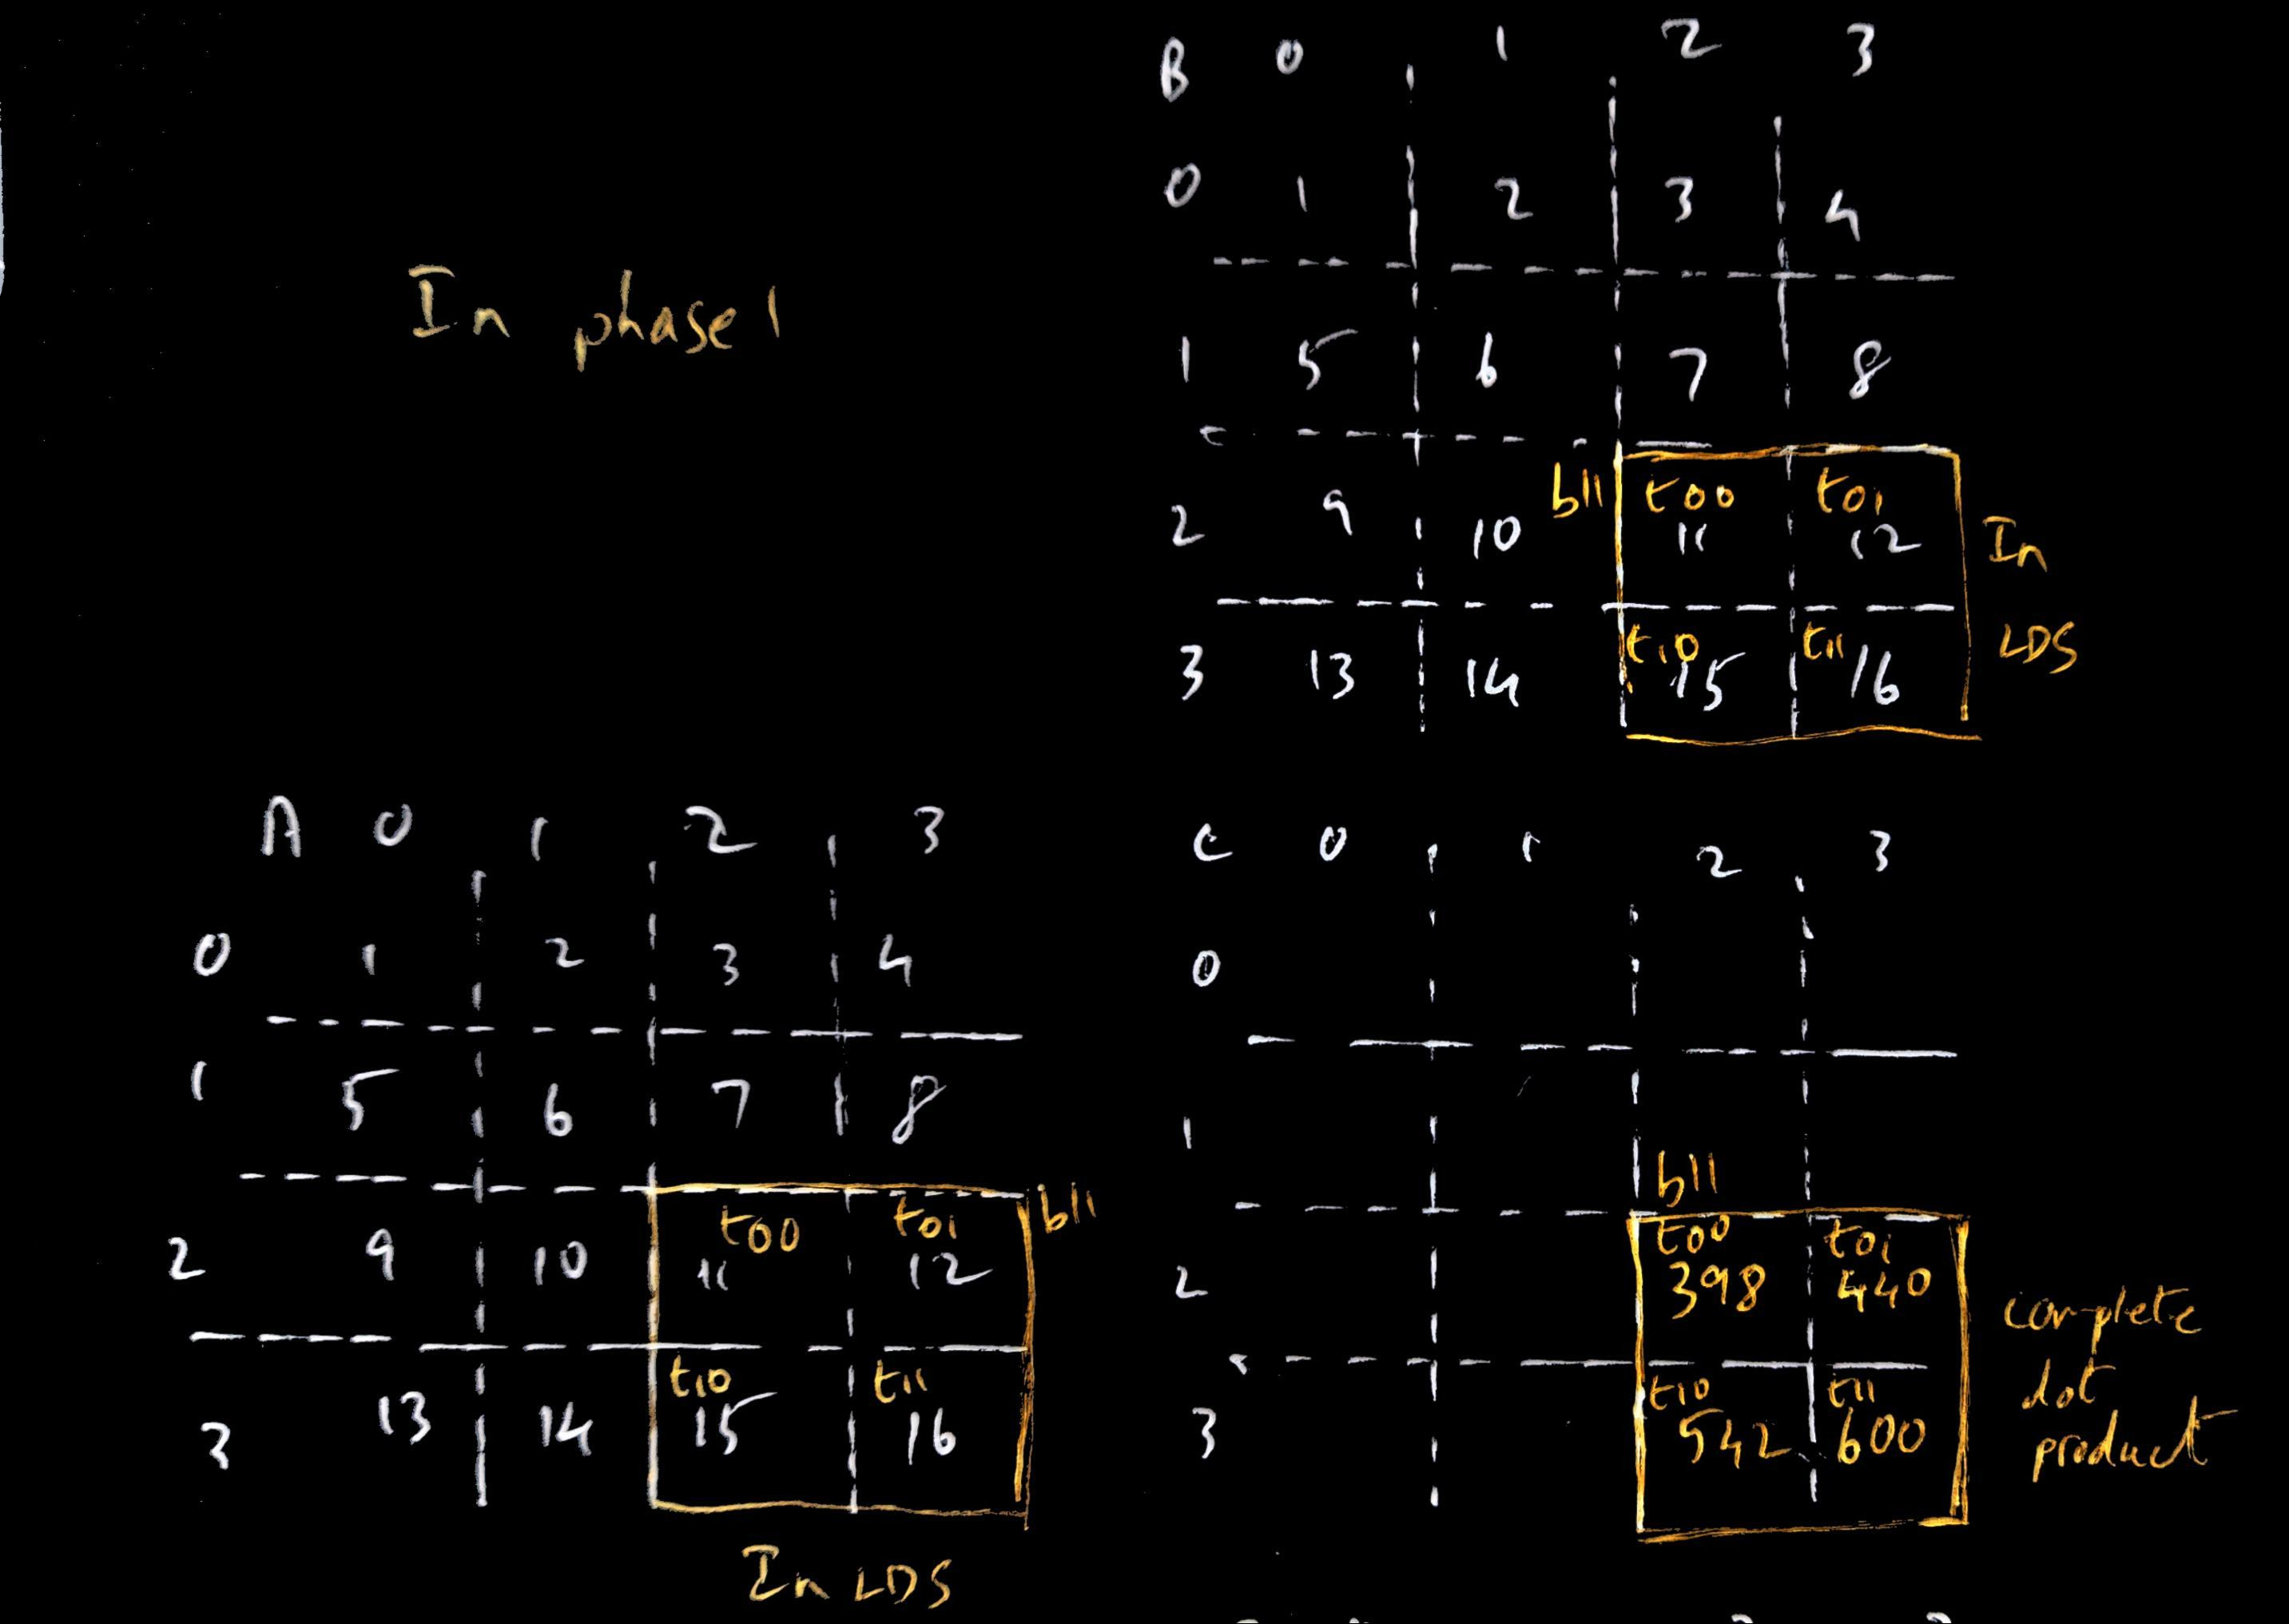 In phase 1
B 0 1 2 3
0 1 2 3 4
1 5 6 7 8
b11 t00 t01
2 9 10 11 12 In
t10 t11 LDS
3 13 14 15 16
A 0 1 2 3
0 1 2 3 4
1 5 6 7 8
t00 t01 b11
2 9 10 11 12
t10 t11
3 13 14 15 16
In LDS
C 0 1 2 3
0
1
b11
t00 t01
2 398 440 complete
t10 t11 dot
3 542 600 product